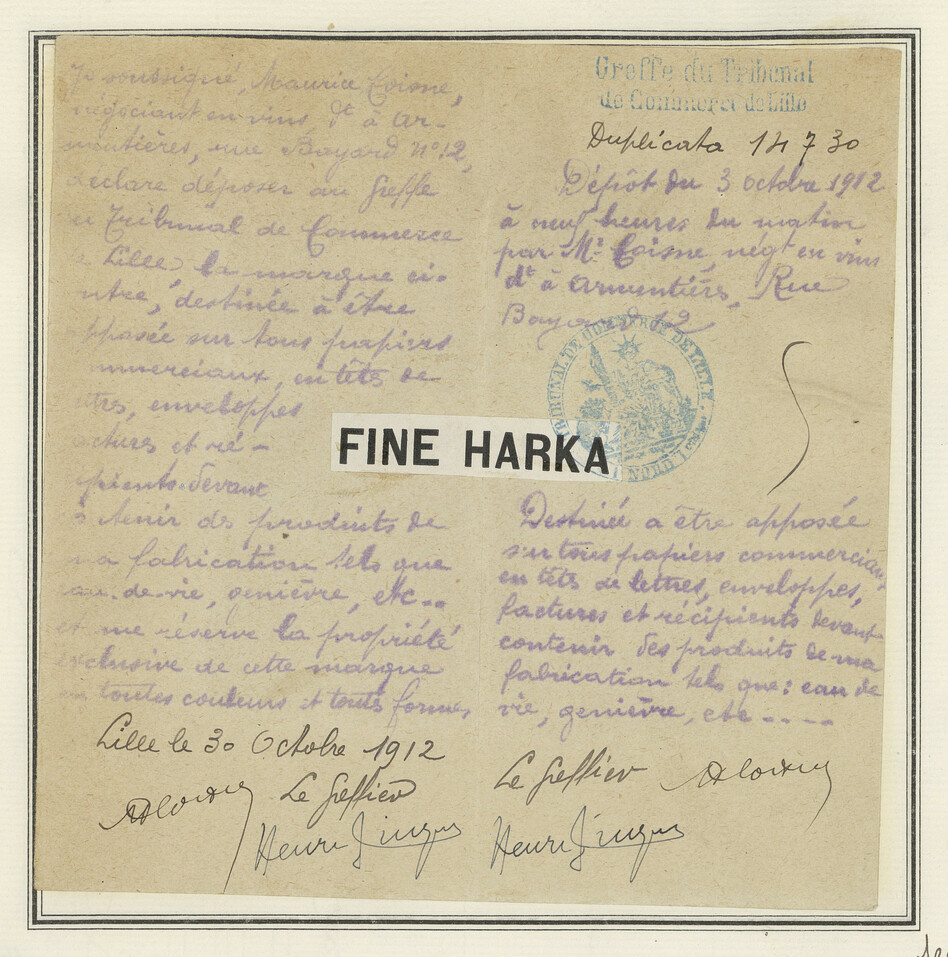 Je soussigné, Maurice Coisne,
négociant en vins, dt à Ar-
mentières, rue Bayard N° 12,
déclare déposer au Greffe
du Tribunal de Commerce
Lille la marque ci-
ntre, destinée à être
pposée sur tous papiers
mmerciaux, en têts de
ttres, enveloppes
ctures et ré-
pients devant
tenir des produits de
ma fabrication tels que
eau-de-vie, genièvre, etc..
et me réserve la propriété
exclusive de cette marque
en toutes couleurs et toutes formes,
Lille le 30 Octobre 1912
Le Greffier
Henri
FINE HARKA
Greffe du Tribunal
de Commerce de Lille
Duplicata 14730
Dépôt du 3 octobre 1912
à neuf heures du matin
par Mr Coisne, négt en vins
dt à Armentières, Rue
Bayard 12
TRIBUNAL DE COMMERCE DE LILLE
NORD
Destinée a être apposée
sur tous papiers commerciaux
en têts de lettres, enveloppes,
factures et récipients devant
contenir des produits de ma
fabrication tels que: eau de
vie, genièvre, etc ----
Le Greffier
Henri